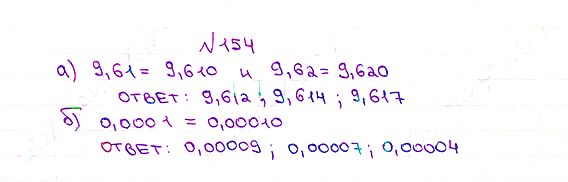 №154
а) 9,61 = 9,610 и 9,62 = 9,620
ответ: 9,612 ; 9,614 ; 9,617
б) 0,0001 = 0,00010
ответ: 0,00009 ; 0,00007 ; 0,00004